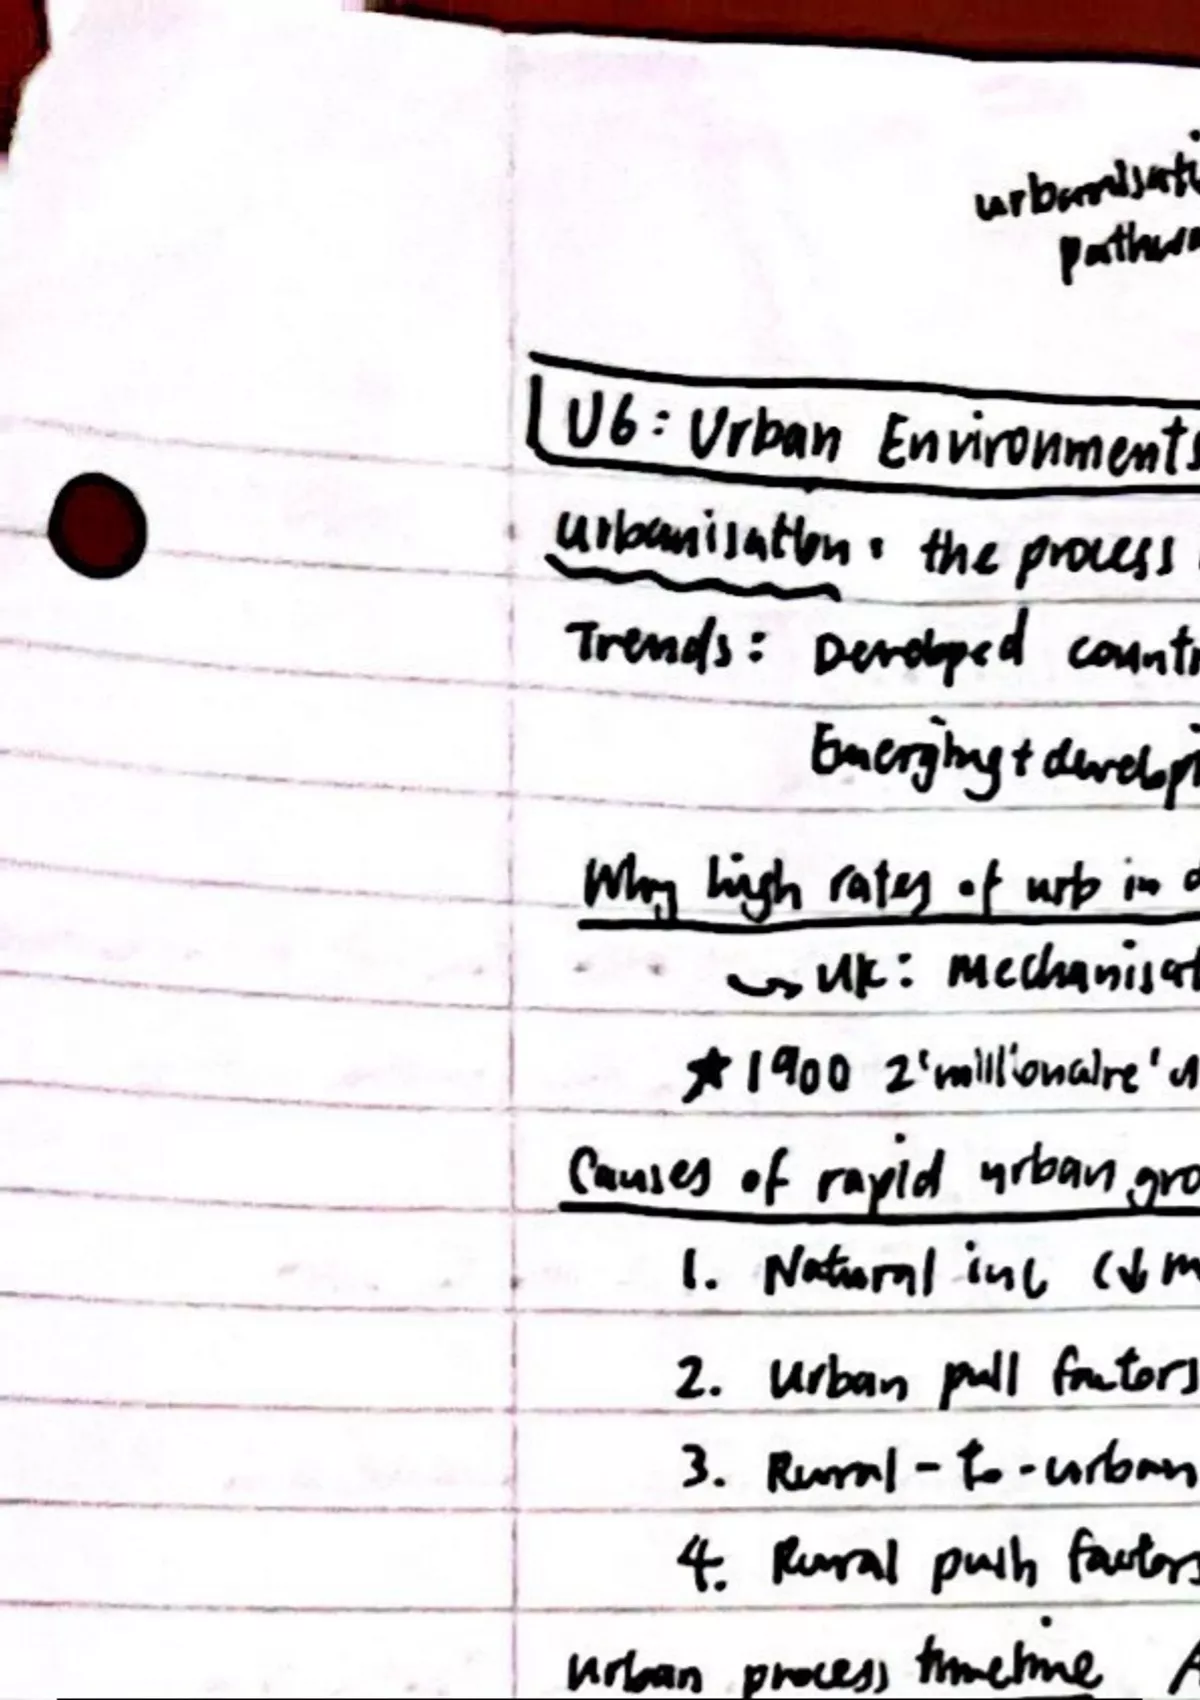 urbanisati
pathwa
U6: Urban Environments
urbanisation: the process
Trends: Developed countr
Emerging + developi
Why high rates of urb in d
↪ UK: mechanisat
★ 1900 2 'millionaire'
Causes of rapid urban gro
1. Natural inc (↓ m
2. Urban pull factors
3. Rural-to-urban
4. Rural push factors
Urban process timeline A